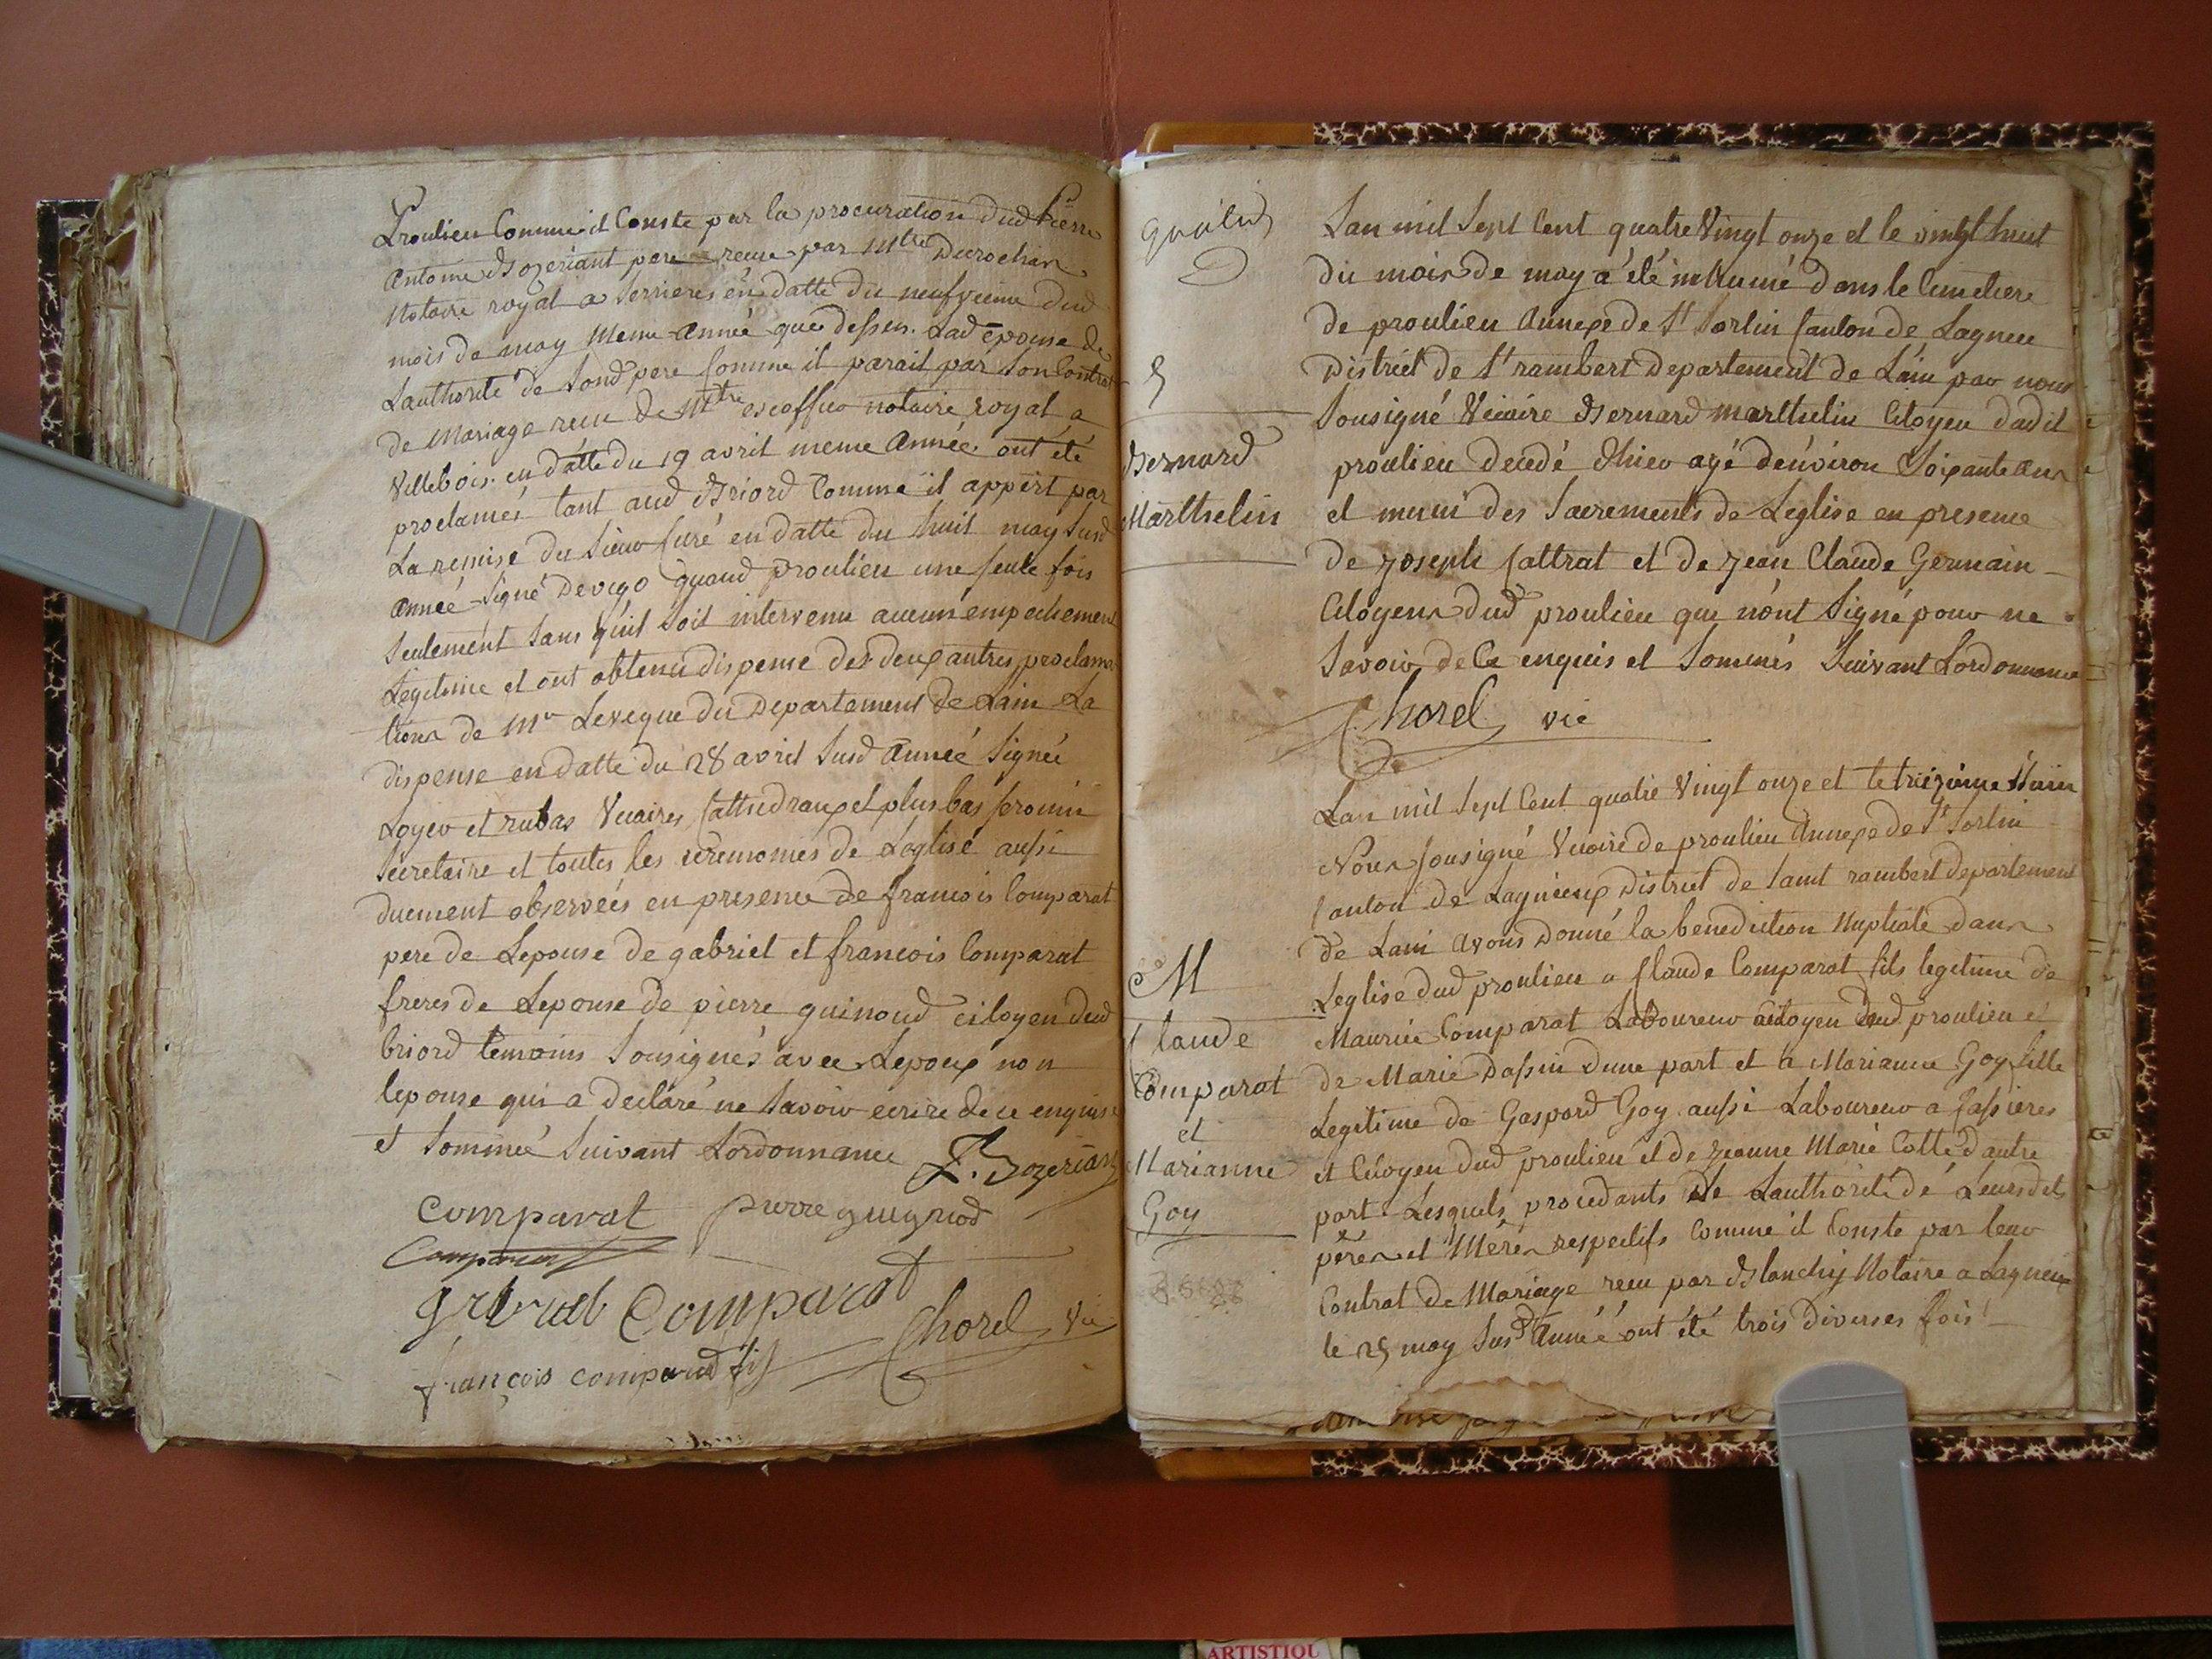 Proulieu Comme il Conste par la procuration dud pierre
antoine Bozeriant pere recue par Mtre Durochas
Notaire royal a Serrieres en datte du neufvieme dud
mois de may meme année que dessus. Lad épouse de
Lauthorité de Sond pere Comme il parait par Son Contrat
de Mariage recu de Mtre escoffier notaire royal a
Villebois en datte du 19 avril meme année ont été
proclamés tant aud Briord Comme il appert par
La remise du Sieur Curé en datte du huit may Susd
année Signé Devigo quaud proulieu une seule fois
Seulement Sans qu'il Soit intervenu aucun empechement
Legitime et ont obtenu dispense des deux autres proclama
tions de Mr Leveque du Departement de Lain La
dispense en datte du 28 avril Susd année Signée
Loyer et rubas Vicaires Cathedraux et plus bas
Secretaire et toutes les ceremonies de Leglise aussi
duement observées en presence de francois Comparat
pere de Lepouse de gabriel et francois Comparat
freres de Lepouse de pierre guinoud citoyen dud
briord temoins Sousignés avec Lepoux non
lepouse qui a declaré ne Savoir ecrire de ce enquise
et Sommée Suivant Lordonnance P. Bozeriant
Comparat pierre guignod
Comparat
gabriel Comparat
françois comparad fils Chorel Vic
S
Bernard
Marthelin
M
Claude
Comparat
et
Marianne
Goy
Lan mil Sept Cent quatre Vingt onze et le vingt huit
du mois de may a été inhumé dans le Cimetiere
de proulieu Annexe de St Sorlin Canton de Lagneu
District de St rambert Departement de Lain par nous
Sousigné Vicaire Bernard Marthelin Citoyen dudit
proulieu decedé d'hier agé d'environ Soixante ans
et muni des Sacrements de Leglise en presence
de joseph Cattrat et de jean Claude Germain
Citoyens dud proulieu qui n'ont Signé pour ne
Savoir de Ce enquis et Sommés Suivant Lordonnance
Chorel vic
Lan mil Sept Cent quatre Vingt onze et le treizieme Juin
Nous Sousigné Vicaire de proulieu Annexe de St Sorlin
Canton de Lagnieux District de Saint rambert departement
de Lain avons Donné la benediction Nuptiale dans
Leglise dud proulieu a Claude Comparat fils legitime de
Maurice Comparat Laboureur citoyen dud proulieu et
de Marie Dassin dune part et a Marianne Goy fille
Legitime de Gaspard Goy aussi Laboureur a
et Citoyen dud proulieu et de jeanne Marie Cotte d'autre
part. Lesquels procedants de Lauthorité de Leursdits
péres et Méres respectifs Comme il Conste par leur
Contrat de Mariage recu par Blanchy Notaire a Lagneux
le 25 may Susd Année ont été trois diverses fois
ARTISTIQU